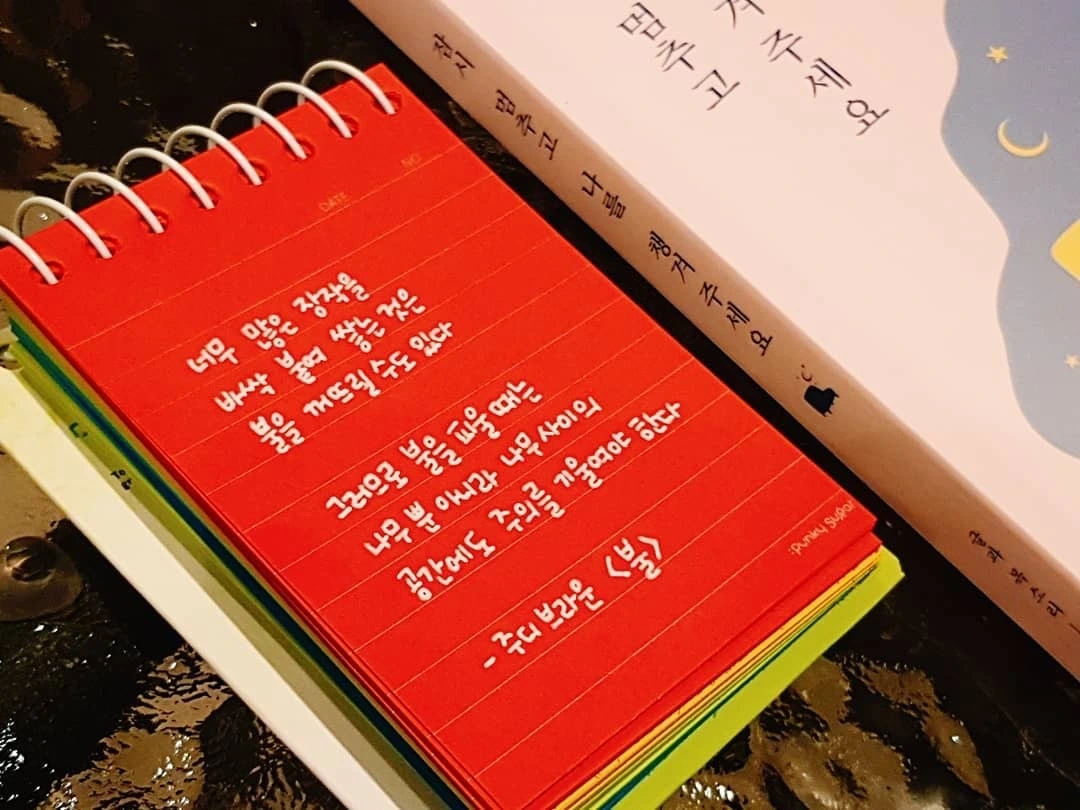 멈추고
겨 주세요
잠시 멈추고 나를 챙겨 주세요
글과 목소리
NO.
DATE
너무 많은 장작을
바싹 붙여 쌓는 것은
불을 꺼뜨릴 수도 있다
그러므로 불을 피울 때는
나무 뿐 아니라 나무 사이의
공간에도 주의를 기울여야 한다
- 주디 브라운 <불>
:punky sugar
To